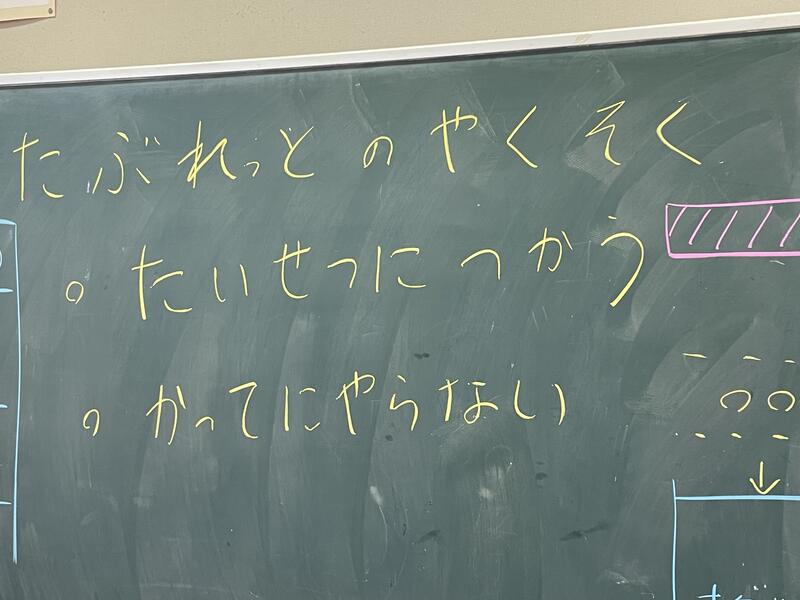 たぶれっとのやくそく
。たいせつにつかう
。かってにやらない